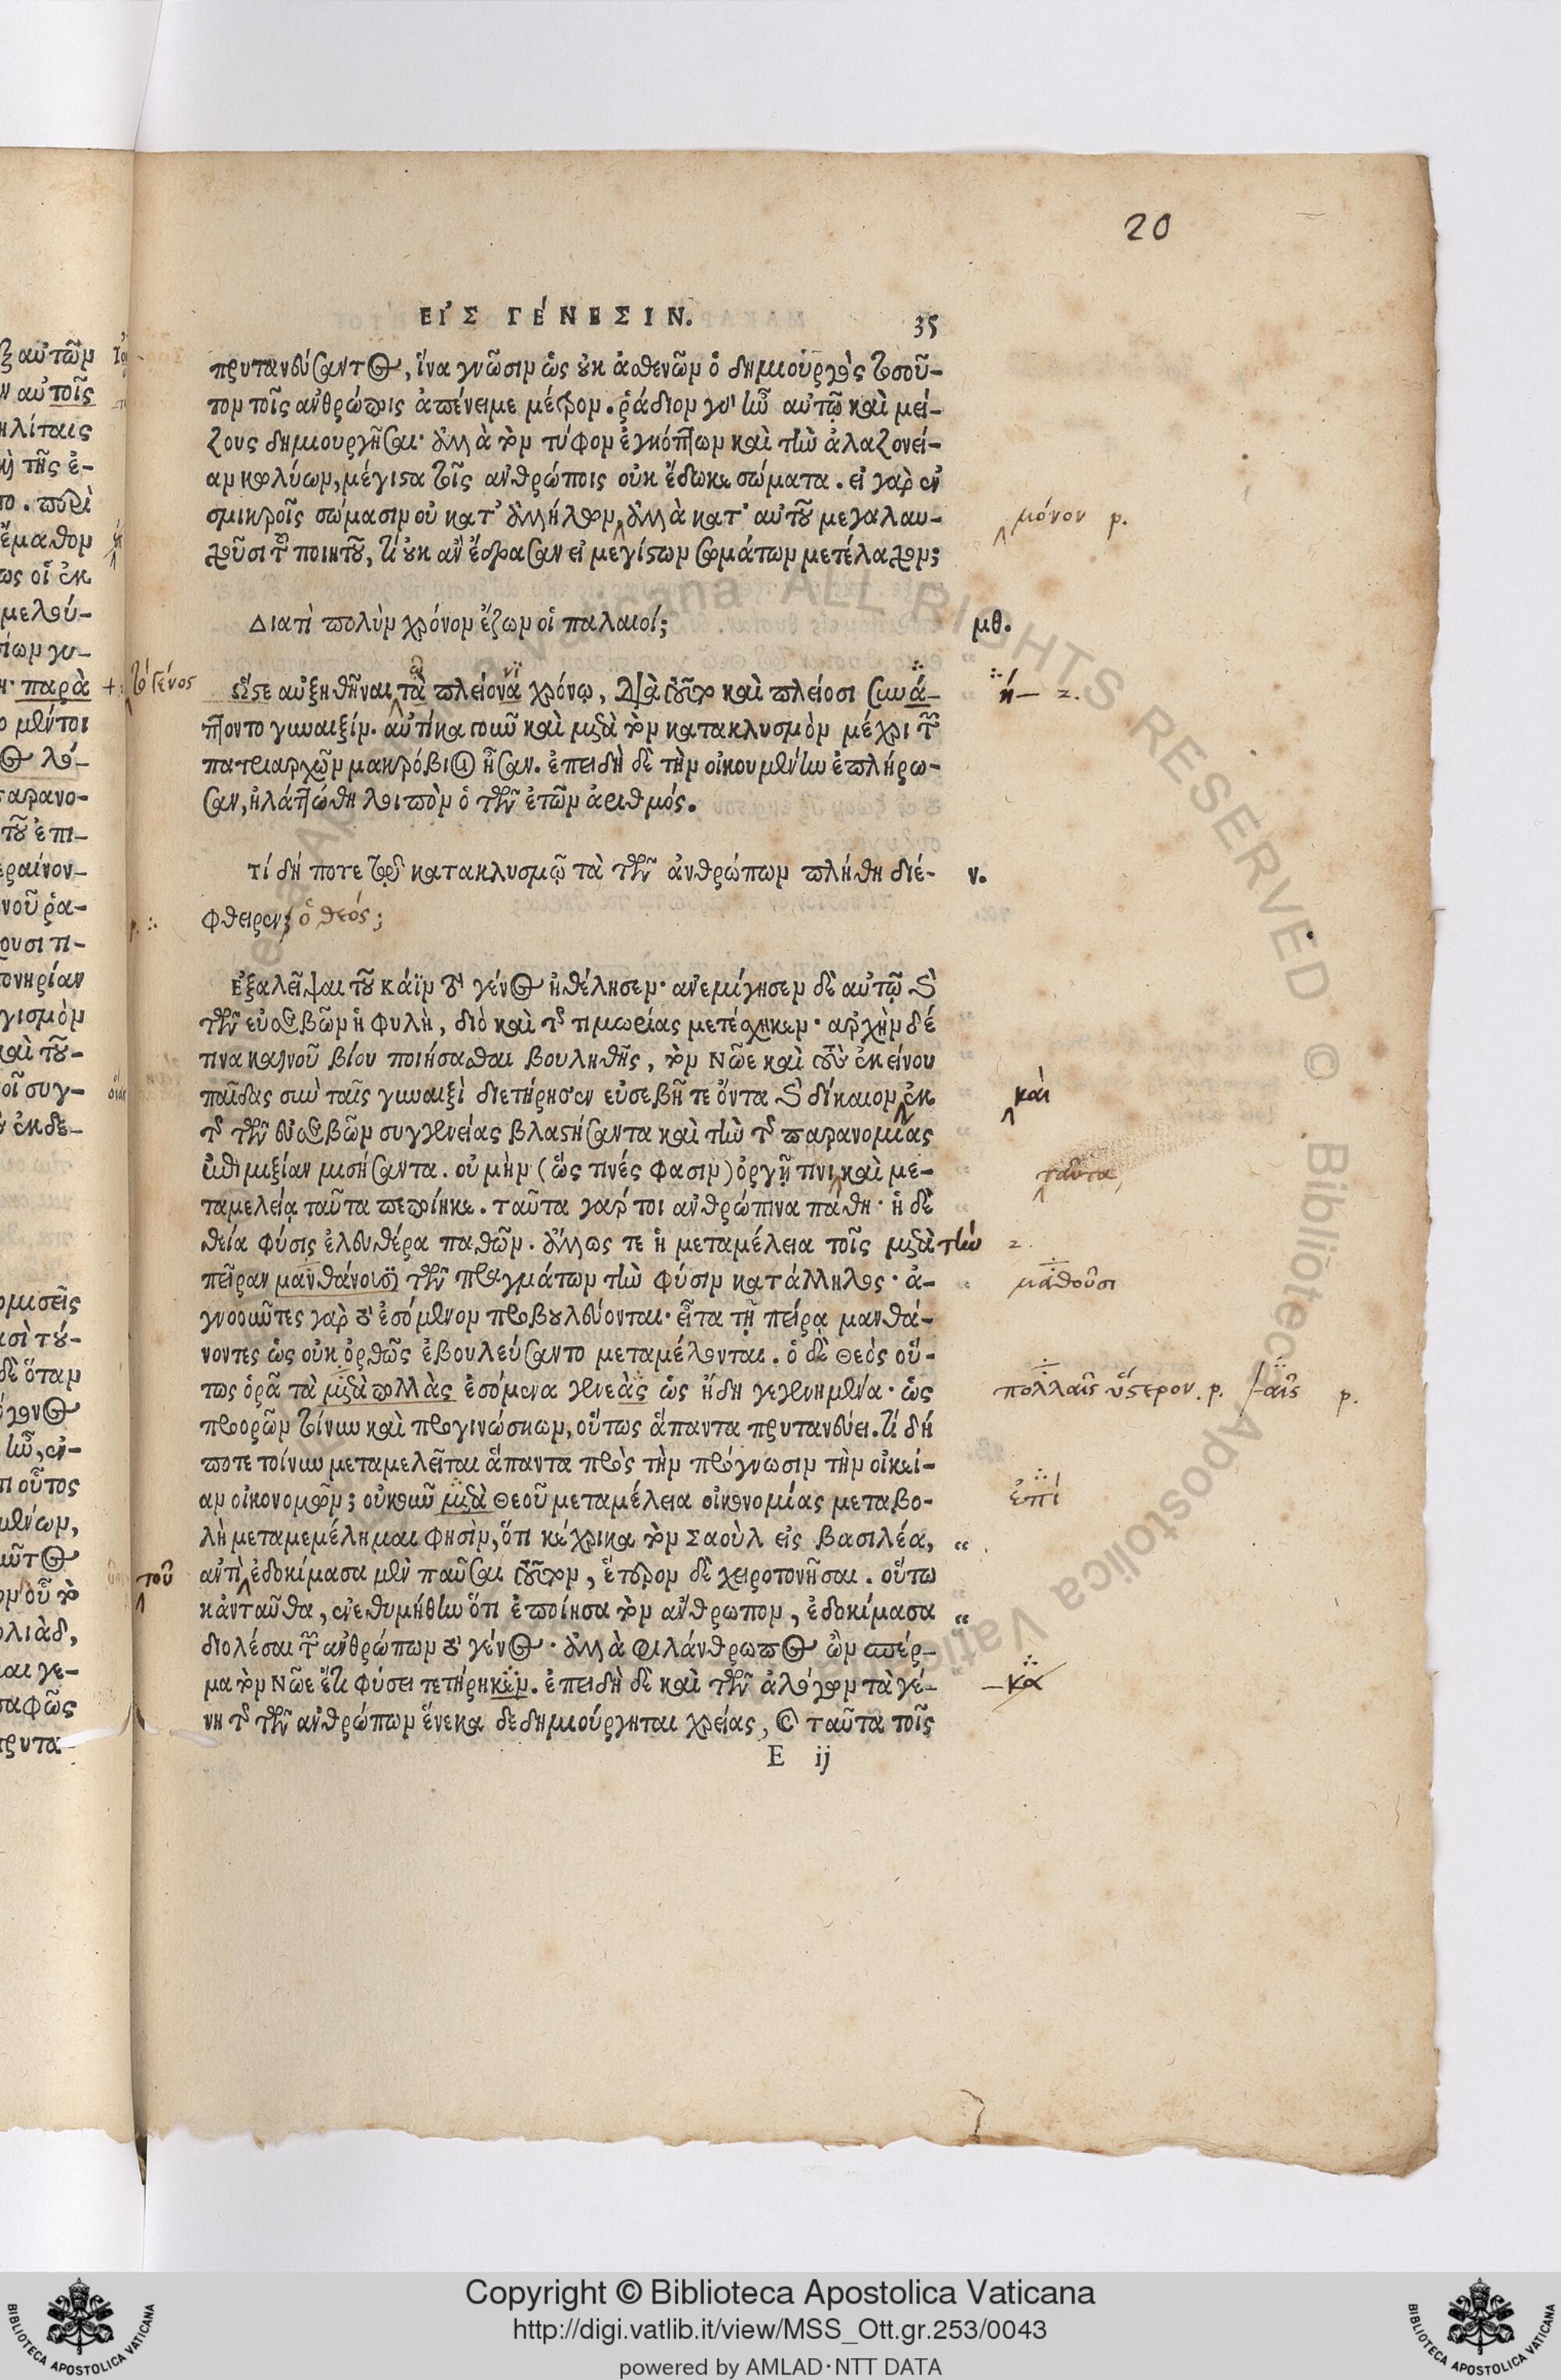 20
ΕΙ᾿Σ ΓΕ΄ΝΕΣΙΝ. 35
πρυτανεύσαντος, ἵνα γνῶσιν ὡς οὐκ ἀσθενῶν ὁ δημιουργὸς τοσοῦ-
τον τοῖς ἀνθρώποις ἀπένειμε μέτρον. ῥάδιον γὰρ ἦν αὐτῷ καὶ μεί-
ζους δημιουργῆσαι· ἀλλὰ τὸν τύφον ἐγκόπτων καὶ τὴν ἀλαζονεί-
αν κωλύων, μέγιστα τοῖς ἀνθρώποις οὐκ ἔδωκε σώματα. εἰ γὰρ ἐν
σμικροῖς σώμασιν οὐ κατ᾽ ἀλλήλων, ἀλλὰ κατ᾽ αὐτοῦ μεγαλαυ-
χοῦσι τοῦ ποιητοῦ, τί οὐκ ἂν ἔδρασαν εἰ μεγίστων σωμάτων μετέλαχον;
μόνον p.
Διατὶ πολὺν χρόνον ἔζων οἱ παλαιοί;
μθ.
τὸ γένος
Ὥστε αὐξηθῆναι, τὰ πλείονα χρόνῳ, διὰ τοῦτο καὶ πλείοσι συνά-
ή— 2.
πτοντο γυναιξίν. αὐτίκα γοῦν καὶ μετὰ τὸν κατακλυσμὸν μέχρι τῶν
πατριαρχῶν μακρόβιοι ἦσαν. ἐπειδὴ δὲ τὴν οἰκουμένην ἐπλήρω-
σαν, ἠλάττώθη λοιπὸν ὁ τῶν ἐτῶν ἀριθμός.
τί δή ποτε τῷ κατακλυσμῷ τὰ τῶν ἀνθρώπων πλήθη διέ-
ν.
φθειρεν; ὁ θεός;
Ἐξαλεῖψαι τοῦ κάϊν τὸ γένος ἠθέλησεν· ἀνεμίγησεν δὲ αὐτῷ καὶ
τῶν εὐσεβῶν ἡ φυλὴ, διὸ καὶ τῆς τιμωρίας μετέσχηκεν· ἀρχὴν δέ
τινα καινοῦ βίου ποιήσασθαι βουληθεὶς, τὸν Νῶε καὶ τοὺς ἐκείνου
παῖδας σὺν ταῖς γυναιξὶ διετήρησεν εὐσεβῆ τε ὄντα καὶ δίκαιον ἐκ
καὶ
τῆς τῶν εὐσεβῶν συγγενείας βλαστήσαντα καὶ τὴν τῆς παρανομίας
ἐπιμιξίαν μισήσαντα. οὐ μὴν (ὥς τινές φασιν) ὀργῇ τινι καὶ με-
ταῦτα
ταμελείᾳ ταῦτα πεποίηκε. ταῦτα γάρ τοι ἀνθρώπινα πάθη· ἡ δὲ
θεία φύσις ἐλευθέρα παθῶν. ἄλλως τε ἡ μεταμέλεια τοῖς μετὰ τὴν
2.
πεῖραν μανθάνουσι τῶν πραγμάτων τὴν φύσιν κατάλληλος· ἀ-
μαθοῦσι
γνοοῦντες γὰρ τὸ ἐσόμενον προβουλεύονται· εἶτα τῇ πείρᾳ μανθά-
νοντες ὡς οὐκ ὀρθῶς ἐβουλεύσαντο μεταμέλονται. ὁ δὲ Θεὸς οὕ-
τως ὁρᾷ τὰ μετὰ πολλὰς ἐσόμενα γενεὰς ὡς ἤδη γεγενημένα· ὡς
πολλαῖς ὕστερον. p. -αῖς p.
προορῶν τοίνυν καὶ προγινώσκων, οὕτως ἅπαντα πρυτανεύει. τί δή
ποτε τοίνυν μεταμελεῖται ἅπαντα πρὸς τὴν πρόγνωσιν τὴν οἰκεί-
αν οἰκονομῶν; οὐκοῦν μετὰ Θεοῦ μεταμέλεια οἰκονομίας μεταβο-
ἐπί
λὴ μεταμεμέλημαι φησὶν, ὅτι κέχρικα τὸν Σαοὺλ εἰς βασιλέα,
τοῦ
ἀντὶ ἐδοκίμασα μὲν παῦσαι τοῦτον, ἕτερον δὲ χειροτονῆσαι. οὕτω
κἀνταῦθα, ἐνεθυμήθην ὅτι ἐποίησα τὸν ἄνθρωπον, ἐδοκίμασα
διολέσαι τῶν ἀνθρώπων τὸ γένος· ἀλλὰ φιλάνθρωπος ὢν σπέρ-
μα τὸν Νῶε ἔτι φύσει τετήρηκεν. ἐπειδὴ δὲ καὶ τῶν ἀλόγων τὰ γέ-
-κα
νη τῆς τῶν ἀνθρώπων ἕνεκα δεδημιούργηται χρείας, καὶ ταῦτα τοῖς
E ij
Copyright © Biblioteca Apostolica Vaticana
http://digi.vatlib.it/view/MSS_Ott.gr.253/0043
powered by AMLAD·NTT DATA